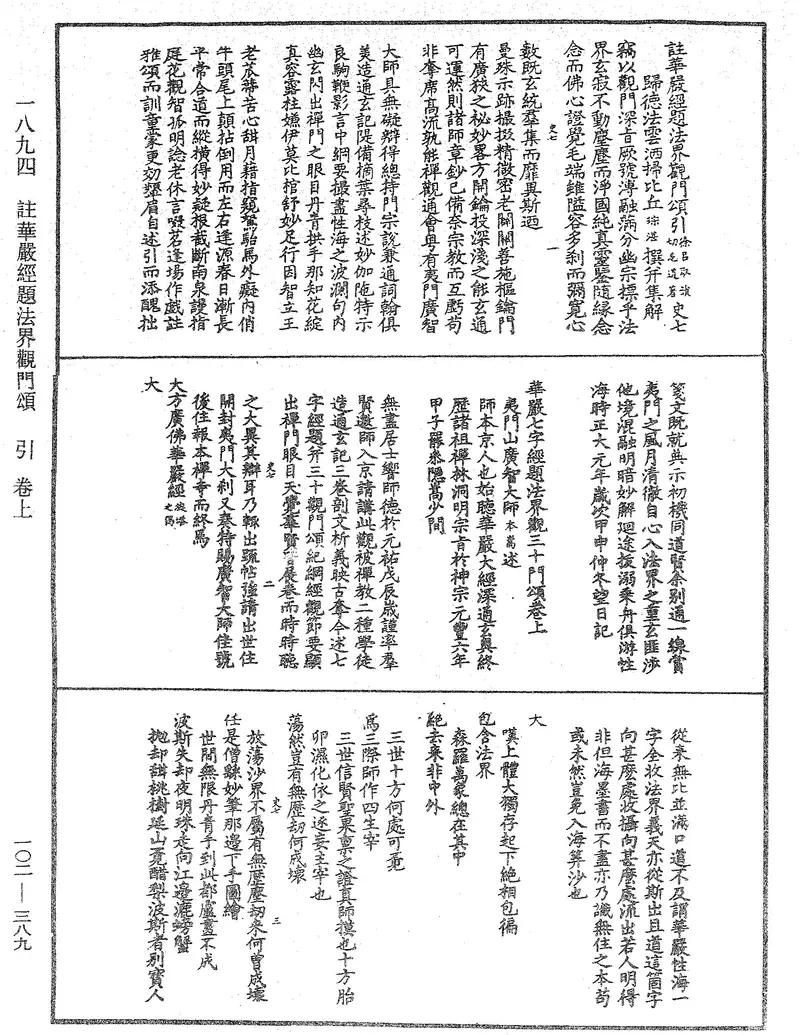 註華嚴經題法界觀門頌引
史七
歸德法雲洒掃比丘琮湛撰并集解
竊以觀門深旨厥號溥融滿分幽宗標乎法
界玄寂不動塵塵而淨國純真靈鑒隨緣念
念而佛心證覺毛端雖隘容多剎而彌寬心
數既玄統羣集而靡異斯迺
史七 一
曼殊示跡撮掇精微密老開關善施樞鑰門
有廣狹之秘妙畧方開鑰投深淺之能玄通
可運然則諸師章鈔已備奈宗教而互虧苟
非奪席高流孰能禪觀通會粵有夷門廣智
大師具無礙辯得總持門宗說兼通詞翰俱
美造通玄記隄備摘葉尋枝述妙伽陁特示
良駒鞭影言中綱要撮盡性海之波瀾句內
幽玄閃出禪門之眼目丹青拱手那知花綻
真容露柱嫌伊莫比棺舒妙足行因智立王
老茋蕣苦心甜月藉指窺駑駘馬外癡內俏
牛頭尾上頭拈倒用而左右逢源春日漸長
平常合道而縱橫得妙疑根截斷南泉謾指
庭花觀智孤明諗老休言啜茗逢場作戲註
雅頌而訓童蒙更効顰眉自述引而添醜拙
箋文既就典示初機同道賢余別通一線賞
夷門之風月清徹自心入法界之重玄匪涉
他境混融明暗妙解迴途拔溺乘舟俱游性
海時正大元年歲次甲申仲冬望日記
華嚴七字經題法界觀三十門頌卷上
夷門山廣智大師本嵩述
師本京人也始聽華嚴大經深通玄奧終
歷諸祖禪林洞明宗旨於神宗元豐六年
甲子羅來隱嵩少間
無盡居士嚮師德於元祐戊辰歲謹率羣
賢邀師入京請講此觀被禪教二種學徒
造通玄記三卷剖文析義映古奪今述七
字經題并三十觀門頌紀綱經觀節要顯
出禪門眼目天覺羣賢嘗展卷而時時聽
史七 二
之大異其辯耳乃輟出疏帖強請出世住
開封夷門大剎又奏特賜廣智大師佳號
後住報本禪寺而終焉
大方廣佛華嚴經
大
從來無比並滿口道不及謂華嚴性海一
字全收法界義天亦從斯出且道這箇字
向甚麽處收攝向甚麽處流出若人明得
非但海墨書而不盡亦乃識無住之本苟
或未然豈免入海算沙也
大
嘆上體大獨存起下絕相包徧
包含法界
森羅萬象總在其中
絕去來非中外
三世十方何處可覓
爲三際師作四生宰
三世信賢聖稟稟之證真師摸也十方胎
卵濕化依之逐妄主宰也
蕩然豈有無歷劫何成壞
史七 三
放蕩沙界不屬有無歷塵劫來何曾成壞
任是僧繇妙筆那邊下手圖繪
世間無限丹青手到此都盧畫不成
波斯失却夜明珠走向江邊漉螃蟹
拋却甜桃樹㳂山覓醋梨波斯者別寶人
一八九四 註華嚴經題法界觀門頌 引 卷上
一〇二—三八九